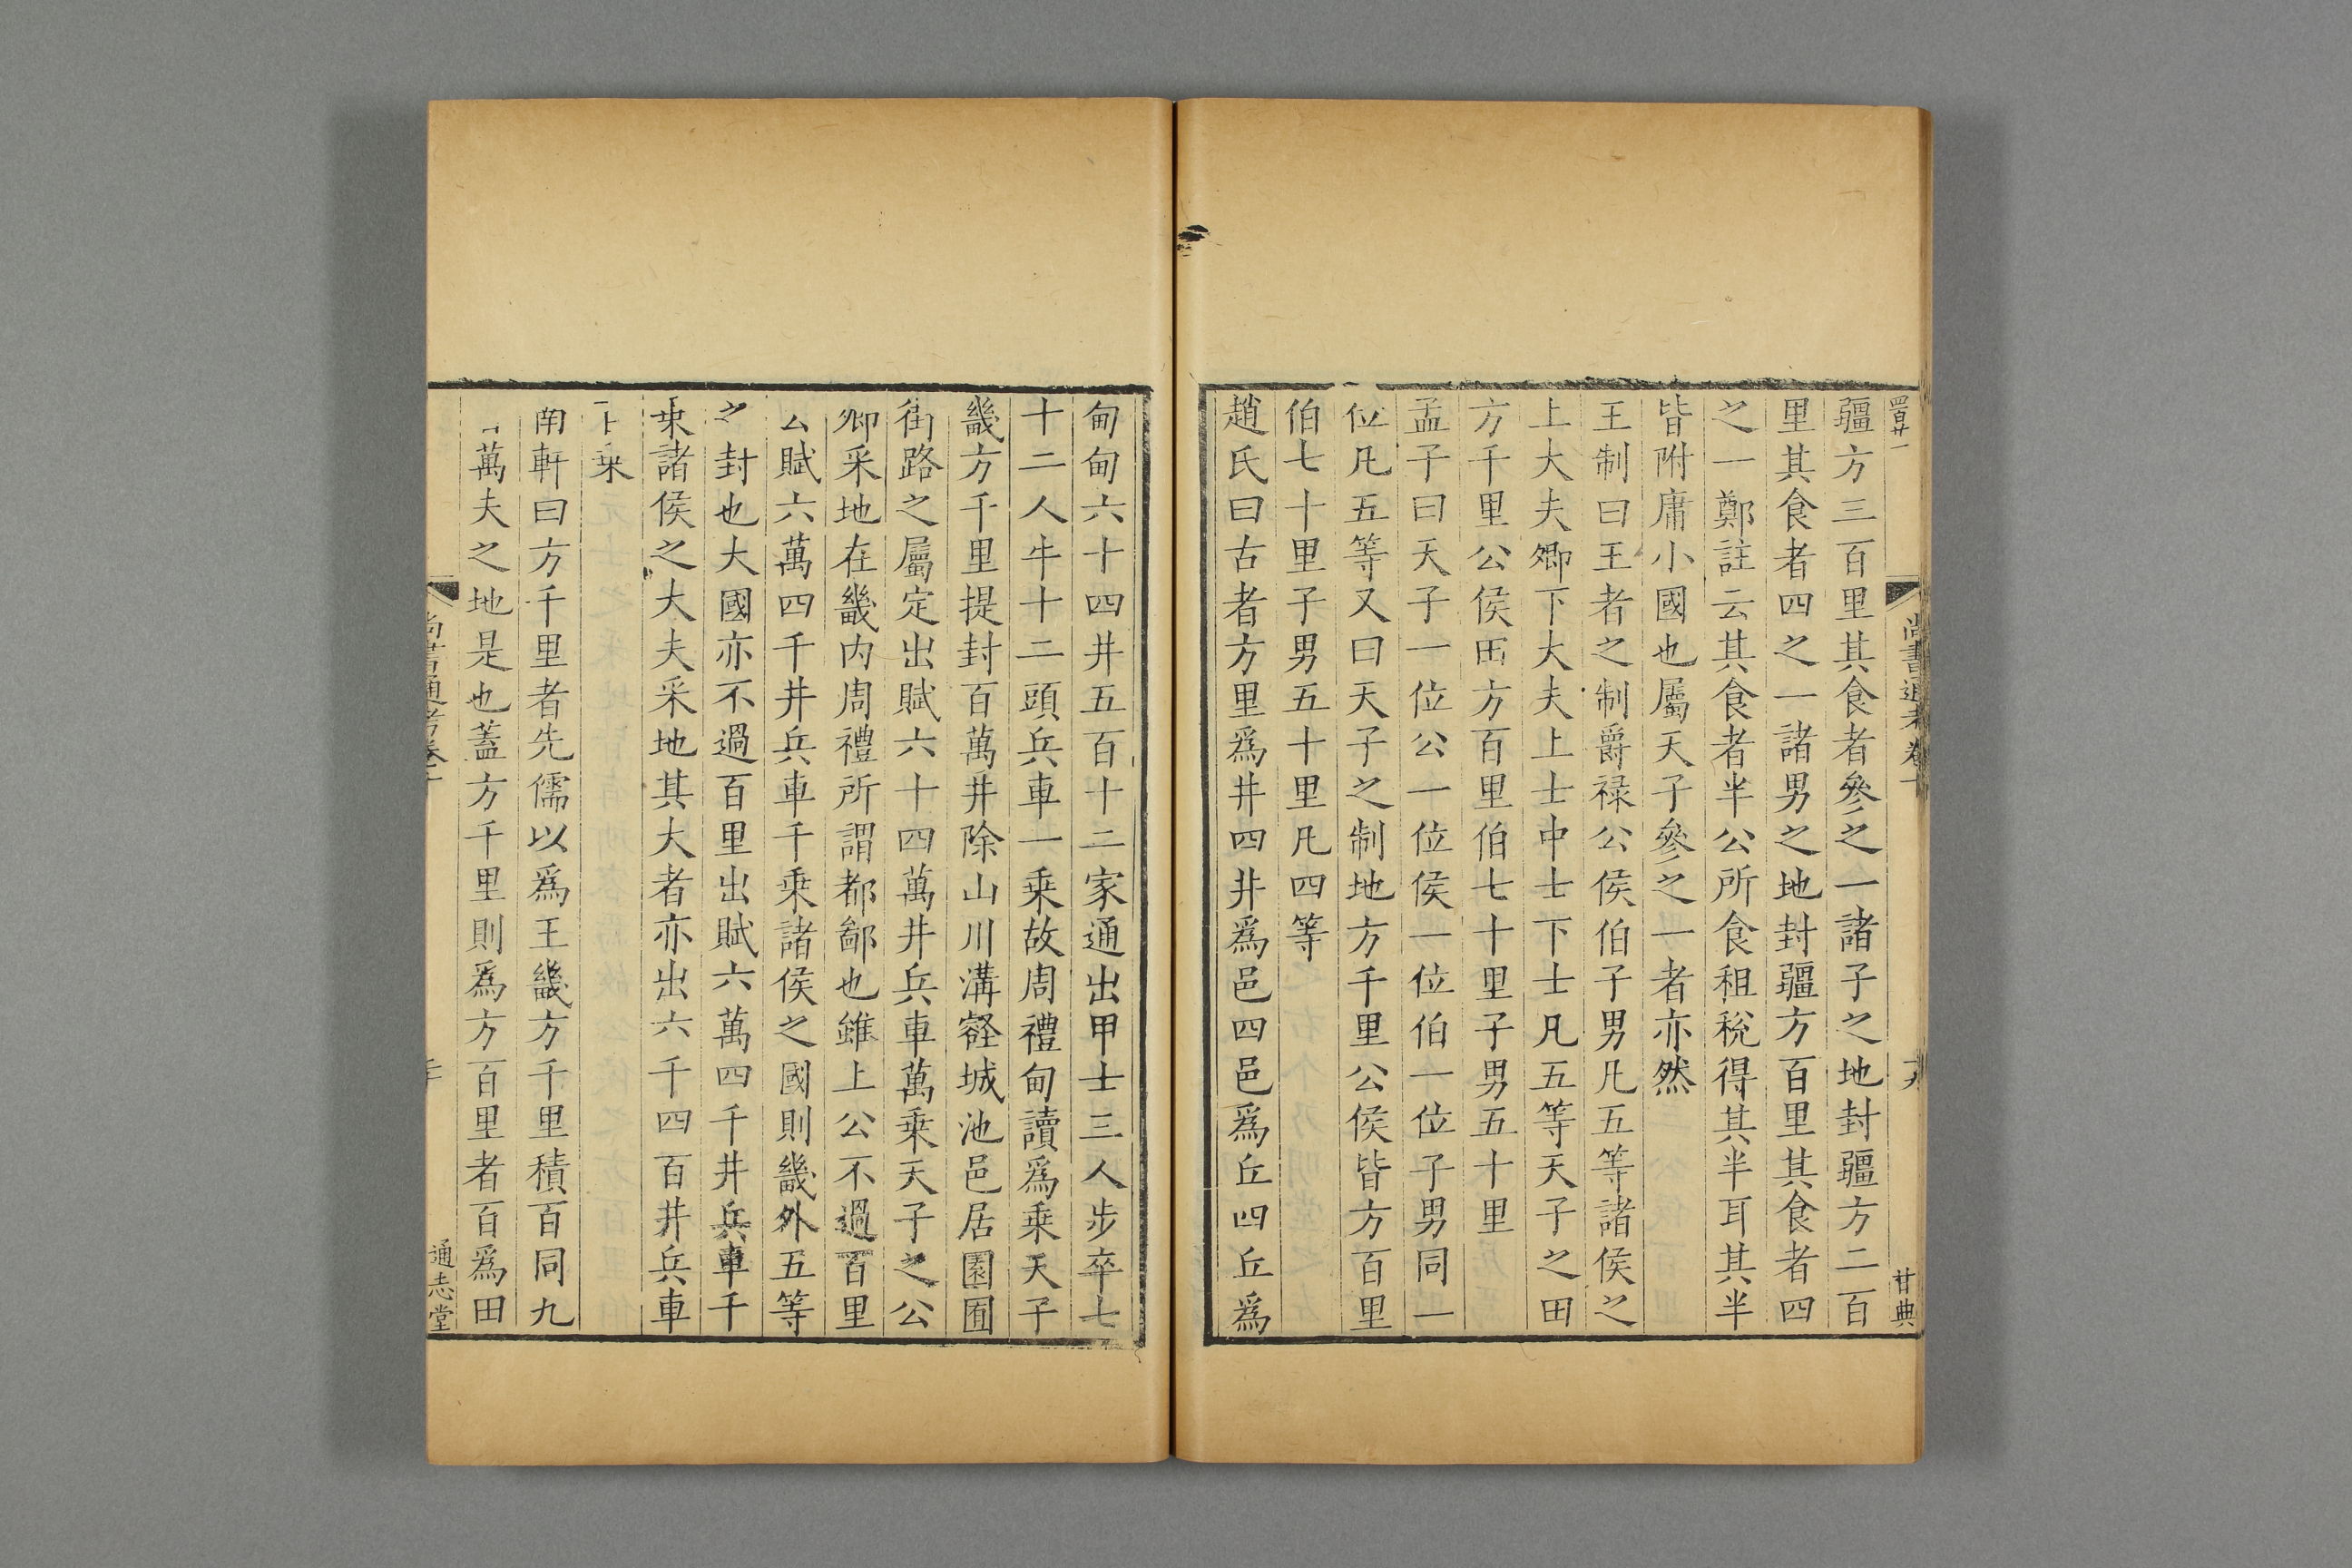 疆方三百里其食者參之一諸子之地封疆方二百
里其食者四之一諸男之地封疆方百里其食者四
之一鄭註云其食者半公所食租稅得其半耳其半
皆附庸小國也屬天子參之一者亦然
王制曰王者之制爵祿公侯伯子男凡五等諸侯之
上大夫卿下大夫上士中士下士凡五等天子之田
方千里公侯田方百里伯七十里子男五十里
孟子曰天子一位公一位侯一位伯一位子男同一
位凡五等又曰天子之制地方千里公侯皆方百里
伯七十里子男五十里凡四等
趙氏曰古者方里爲井四井爲邑四邑爲丘四丘爲
甸甸六十四井五百十二家通出甲士三人步卒七
十二人牛十二頭兵車一乗故周禮甸讀爲乗天子
畿方千里提封百萬井除山川溝壑城池邑居園囿
街路之屬定出賦六十四萬井兵車萬乗天子之公
卿采地在畿内周禮所謂都鄙也雖上公不過百里
公賦六萬四千井兵車千乗諸侯之國則畿外五等
之封也大國亦不過百里出賦六萬四千井兵車千
乗諸侯之大夫采地其大者亦出六千四百井兵車
百乗
南軒曰方千里者先儒以爲王畿方千里積百同九
百萬夫之地是也蓋方千里則爲方百里者百爲田
尚書通考卷十
通志堂
尚書通考卷十
十九
甘典